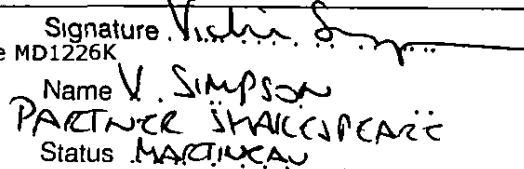 Signature Vicki Simpson
e MD1226K
Name V. SIMPSON
PARTNER SHAKESPEARE
Status MARTINEAU